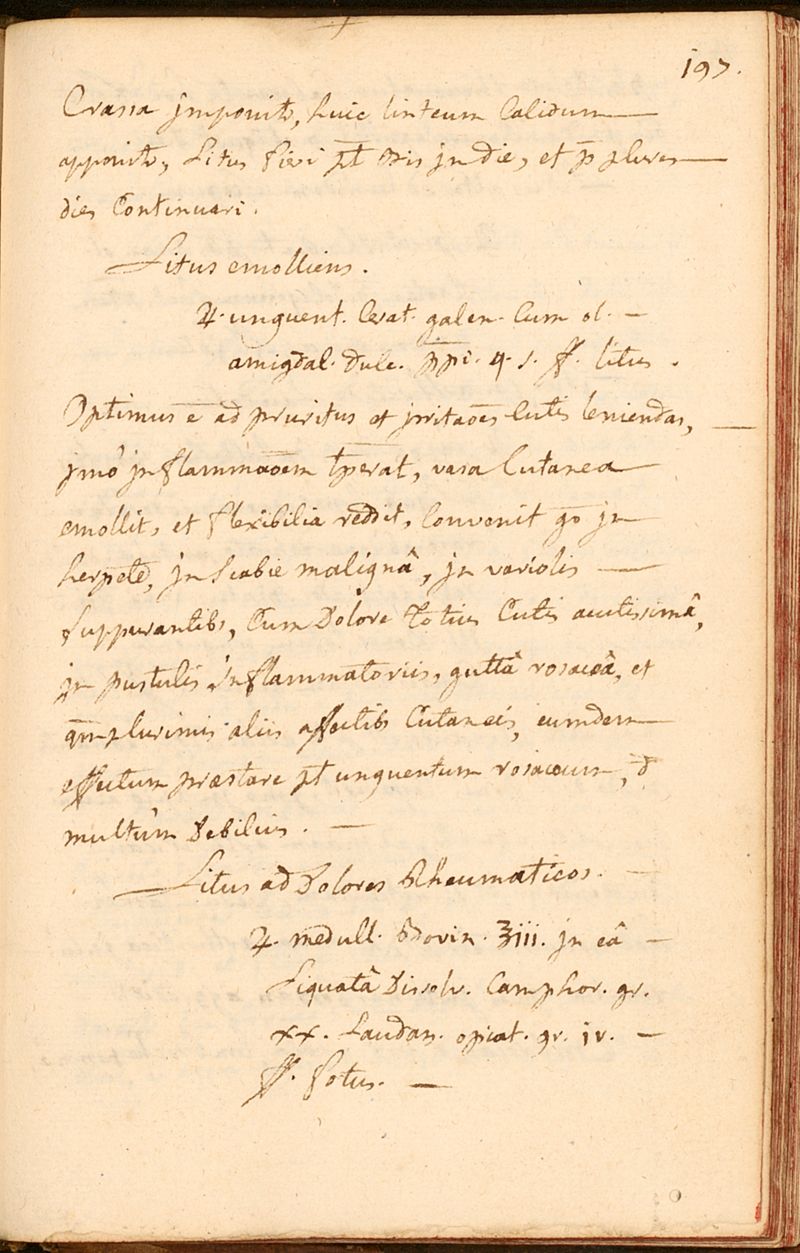 197.
Crassa jmponit^r, huic linteum Calidum
apponit^r, Litus fieri p̄t bis jn die, et p̄ plures
dies Continuari.
Litus emolliens.
♃. unguent. Cerat. galen. Cum ol.
amigdal. dulc. p̄p̄i. q. s. ff. litus.
Optimus ē ad pruritus et jrritaōes Cutis leniendas,
jmo jnflammaōem t̄perat, vasa Cutanea
emollit, et flexibilia reddit, Convenit g̅o jn
herpete, jn scabie malignâ, jn variolis
suppurantib9, Cum Dolore totius Cutis acutissimâ,
jn pustulis inflammatoriis, guttâ rosaceâ, et
q̄mplurimis aliis affectib9 Cutaneis, eumdem
effectum præstare p̄t unguentum rosaceum,
multùm Debilius.
Litus ad Dolores Rheumaticos.
♃. medull. Bovin. ℥iii. jn eâ
Liquatâ Dissolv. Camphor. gr.
xx. Laudan. opiat. gr. iv.
ff. fotus.